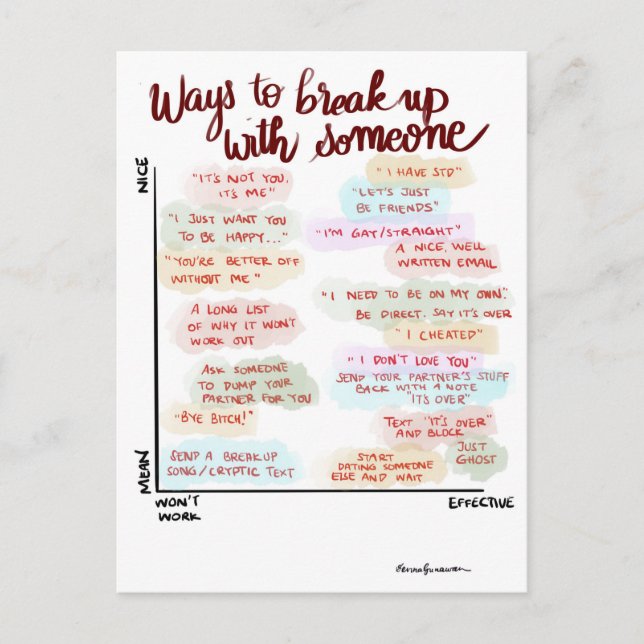 Ways to break up
with someone
NICE
"IT'S NOT YOU,
IT'S ME"
"I HAVE STD"
"LET'S JUST
BE FRIENDS"
"I JUST WANT YOU
TO BE HAPPY..."
"I'M GAY/STRAIGHT"
A NICE, WELL
WRITTEN EMAIL
"YOU'RE BETTER OFF
WITHOUT ME"
"I NEED TO BE ON MY OWN".
BE DIRECT. SAY IT'S OVER
A LONG LIST
OF WHY IT WON'T
WORK OUT
"I CHEATED"
"I DON'T LOVE YOU"
ASK SOMEONE
TO DUMP YOUR
PARTNER FOR YOU
SEND YOUR PARTNER'S STUFF
BACK WITH A NOTE
"IT'S OVER"
"BYE BITCH!"
TEXT "IT'S OVER"
AND BLOCK
SEND A BREAKUP
SONG/CRYPTIC TEXT
START
DATING SOMEONE
ELSE AND WAIT
JUST
GHOST
MEAN
WON'T
WORK
EFFECTIVE